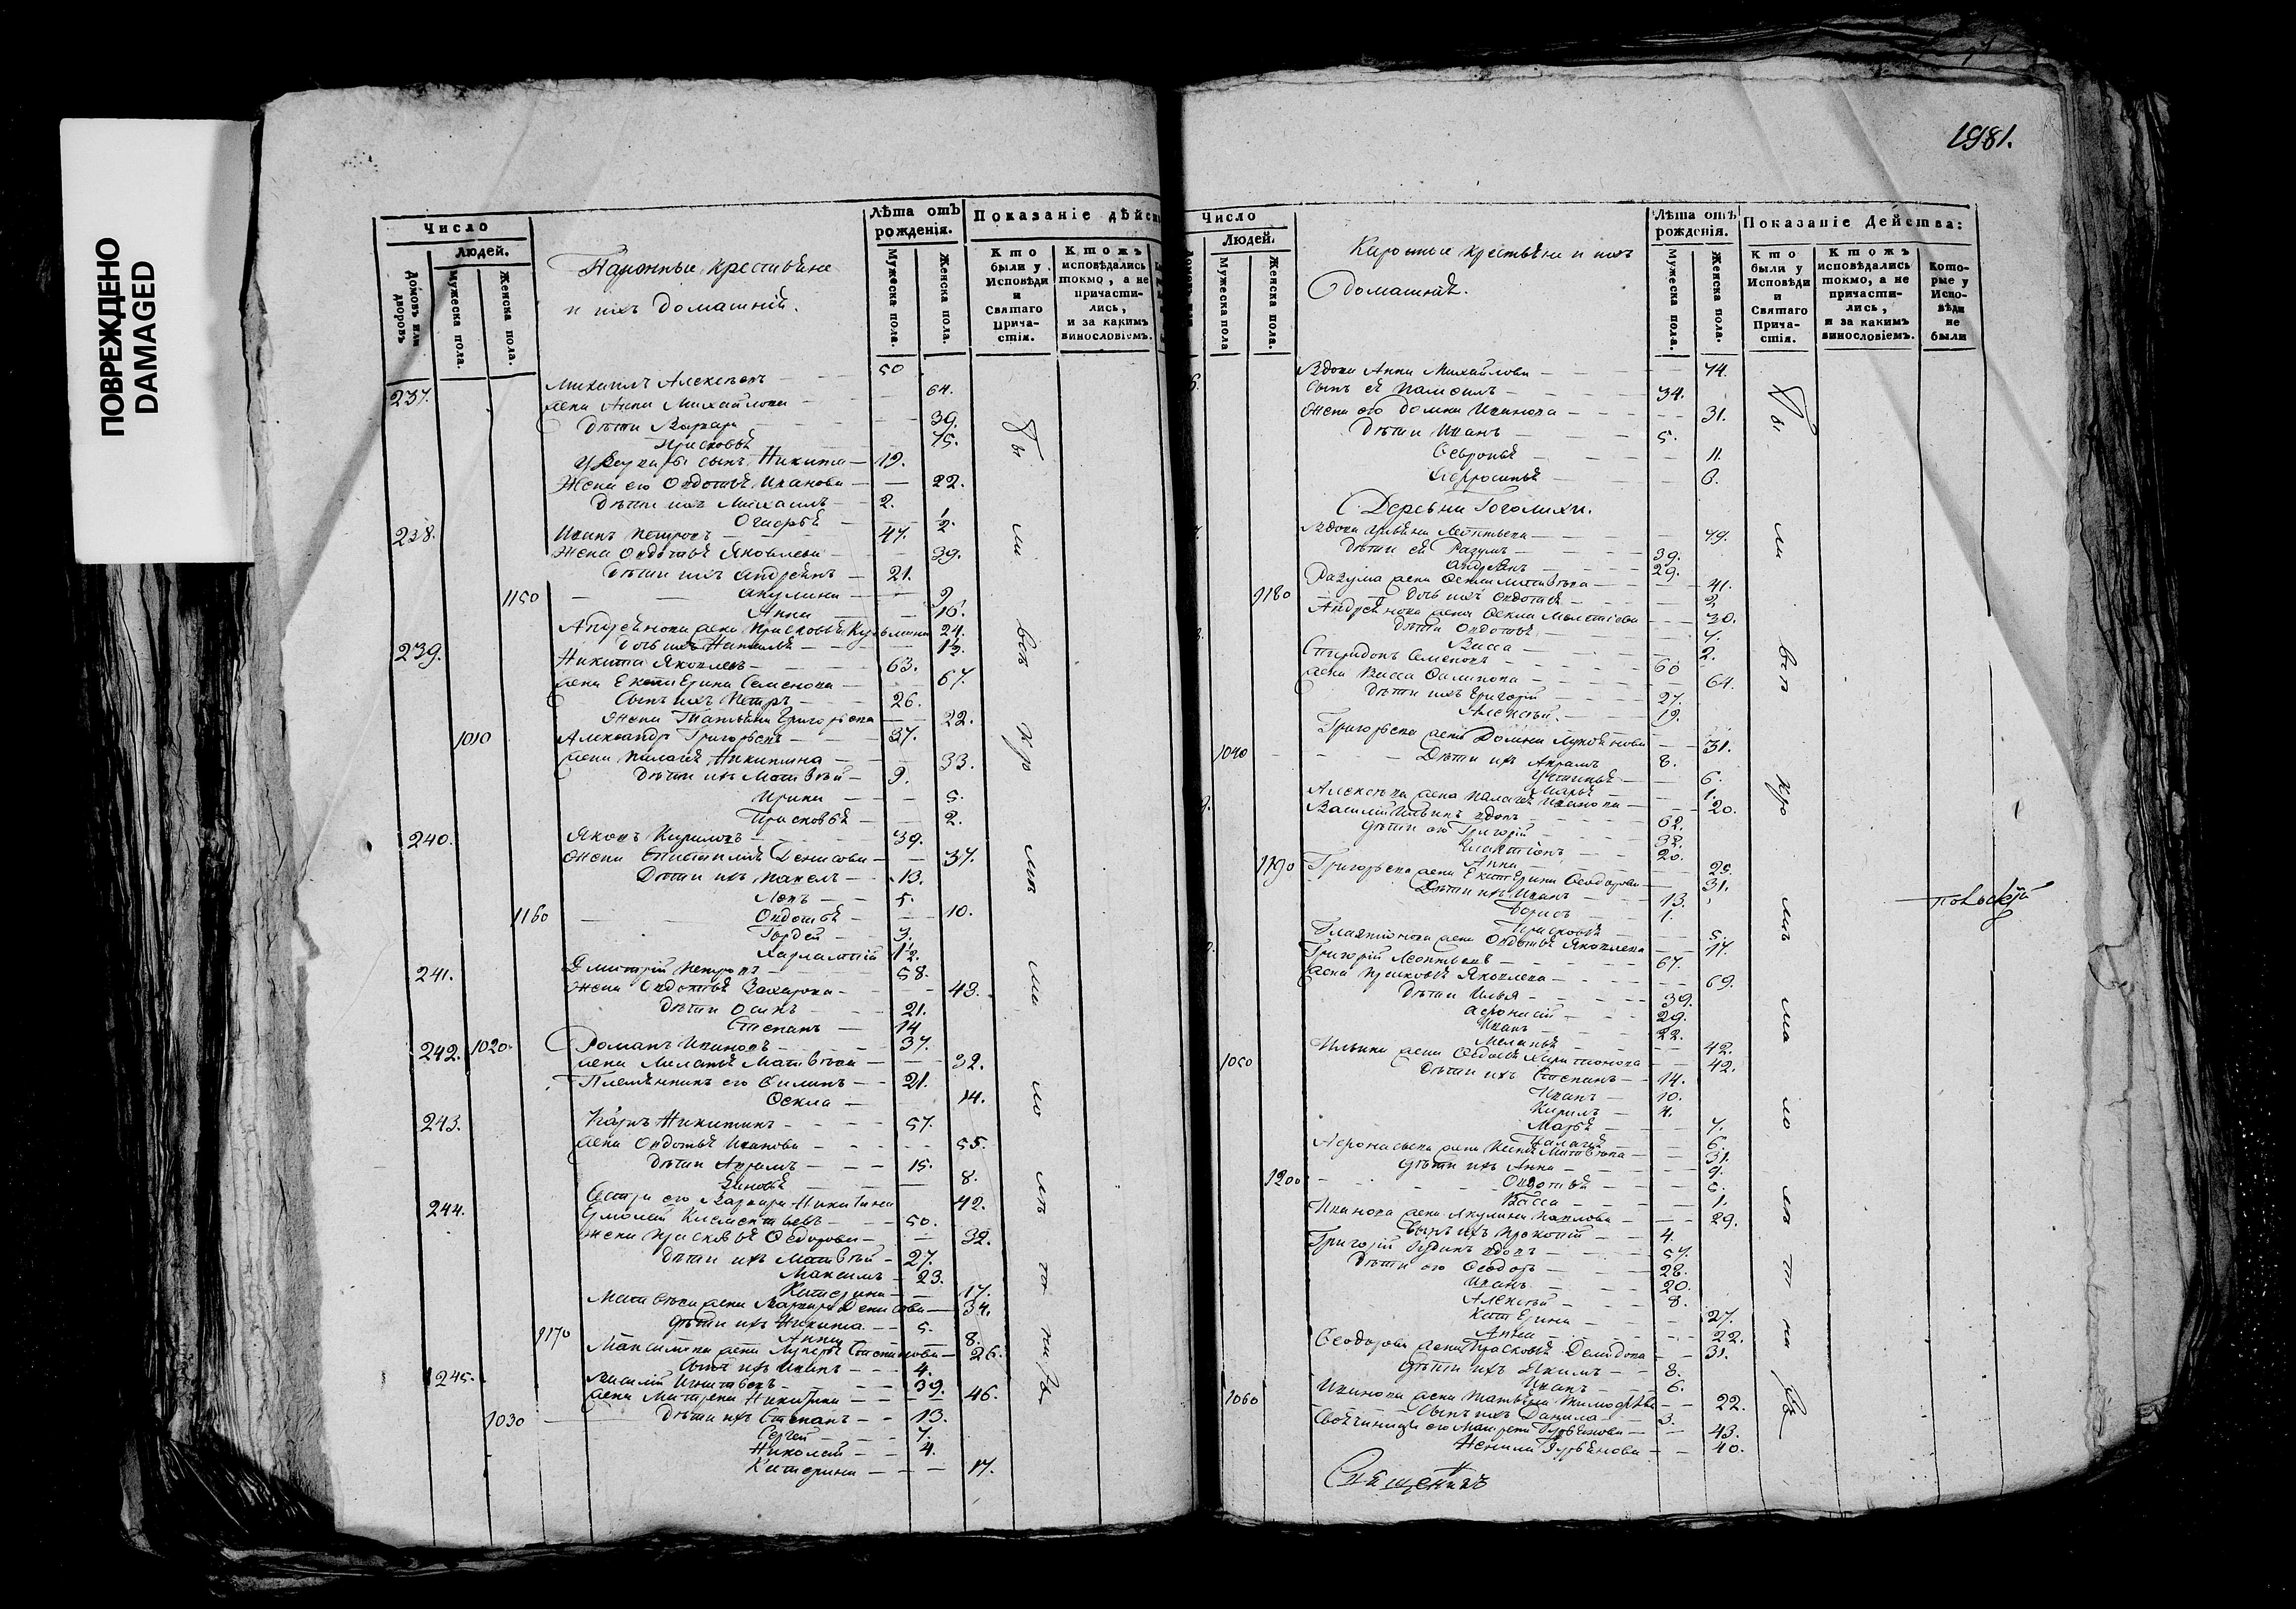 ПОВРЕЖДЕНО
DAMAGED
Число
Людей.
Домовъ или дворовъ
Мужеска пола.
Женска пола.
крестьѣне
и ихъ домашнїи.
Лѣта отъ рожденїя.
Мужеска пола.
Женска пола.
Показанїе дѣйст
Кто были у Исповѣди и Святаго Прича-стїя.
Ктожъ исповѣдались токмо, а не причасти-лись, и за какимъ винословїемъ.
237. Михаилъ Алексѣевъ 50
жена Анна Михайлова 64.
Дѣти Варвара 39.
Прасковьѣ 15.
У Варвары сынъ Никита 19.
Жена его Овдотьѣ Иванова 22.
Дѣти ихъ Михаилъ 2.
1/2.
238. Иванъ Петровъ 47.
Жена Овдотьѣ Яковлева 39.
Дѣти ихъ Андреѣнъ 21.
1150 Акулина 9
Анна 16.
Андреѣнова жена Прасковьѣ Кузьмина 24.
Дочь ихъ 1 1/2.
239. Никита Яковлевъ 63.
жена Екатерина Семенова 67.
Сынъ ихъ Петръ 26.
Жена Татьѣна Григорьева 22.
1010 Александръ Григорьевъ 37.
жена Палагѣѣ Никитина 33.
Дѣти ихъ Матвѣй 9.
Ирина 5.
Прасковьѣ 2.
240. Яковъ Кириловъ 39.
Жена Денисова 37.
Дѣти ихъ Павелъ 13.
Левъ 5.
1160 Овдотьѣ 10.
Гордей 3.
Харлампїй 1 1/2.
241. Дмитрїй Петровъ 58.
Жена Овдотьѣ Захарова 43.
Дѣти Осипъ 21.
Степанъ 14
242. 1020. Романъ Ивановъ 37.
жена Меланьѣ Матвѣева 32.
Племѣнникъ его Филипъ 21.
Ѳекла 14.
243. Карпъ Никитинъ 57.
жена Овдотьѣ Иванова 55.
Дѣти Аврамъ 15.
Зиновьѣ 8.
Сестра его Варвара Никитина 42.
244. Ермолай Клементьевъ 50.
Жена Прасковьѣ Ѳедорова 32.
Дѣти ихъ Матвѣй 27.
Максимъ 23.
Катерина 17.
Матвѣева жена Варвара Денисова 34.
Дѣти ихъ Никита 5.
1170 Анна 8.
Максимова жена Лукерьѣ Степанова 26.
Сынъ ихъ Иванъ 4.
245. Василїй Игнатьевъ 39.
жена Матрена Никитина 46.
1030 Дѣти ихъ Степанъ 13.
Сергей 7.
Николай 4.
Катерина 17.
1981.
Число
Людей.
Мужеска пола
Женска пола.
крестьѣне и ихъ
домашнїѣ.
Лѣта отъ рожденїя.
Мужеска пола.
Женска пола.
Показанїе Действа:
Кто были у Исповѣди и Святаго Прича-стїя.
Ктожъ исповѣдались токмо, а не причасти-лись, и за какимъ винословїемъ.
Кото-рые у Испо-вѣди не были
Вдова Анна Михайлова 74.
Сынъ еѣ Самоилъ 34.
Жена его Домна Иванова 31.
Дѣти Иванъ 5.
Ѳевроньѣ 11.
8.
Деревни Гоголихи.
Вдова Ульѣна Леонтьева 79.
Дѣти еѣ Разумъ 39.
Андреѣнъ 29.
Разума жена Ѳекла Матвѣева 41.
1180 дочь ихъ Овдотьѣ 2
Андреѣнова жена Ѳекла 30.
Дѣти Овдотьѣ 7.
Васса 2.
Спиридонъ Семеновъ 60
жена Васса Филипова 64.
Дѣти ихъ Григорїй 27.
Алексѣй 19.
Григорьева жена Домна 31.
1040 Дѣти ихъ Аврамъ 8.
Устиньѣ 6.
Марьѣ 1.
Алексѣева жена Палагѣѣ Иванова 20.
Василїй Ильинъ вдовъ 62.
Дѣти его Григорїй 32.
20.
Анна 25.
1190 Григорьева жена Екатерина Ѳеодорова 31.
Дѣти ихъ Иванъ 13.
Борисъ 1.
Прасковьѣ 5.
жена Овдотьѣ Яковлева 17.
Григорїй Леонтьевъ 67.
жена Прасковьѣ Яковлева 69.
Дѣти Илья 39.
Афонасїй 29.
Иванъ 22.
Меланьѣ 42.
Ильина жена Ѳедосьѣ Харитонова 42.
1050 Дѣти ихъ Степанъ 14.
Иванъ 10.
Кирилъ 4.
Марьѣ 7.
Палагѣѣ 6.
Афонасьева жена Матвѣева 31.
Дѣти ихъ Анна 9.
1200 Овдотьѣ 5.
Васса 1.
Иванова жена Акулина Павлова 29.
Сынъ ихъ Прокопїй 4.
Григорїй вдовъ 57.
Дѣти его Ѳеодоръ 28.
Иванъ 20.
Алексѣй 8.
Катерина 27.
Анна 22.
Ѳеодорова жена Прасковьѣ Демидова 31.
Дѣти ихъ Якимъ 8.
Иванъ 6.
Иванова жена Татьѣна Тимофѣева 22.
1060 Сынъ ихъ Данила 3.
Своѣчиницы его Матрена Гурьѣнова 43.
Ненила Гурьѣнова 40.